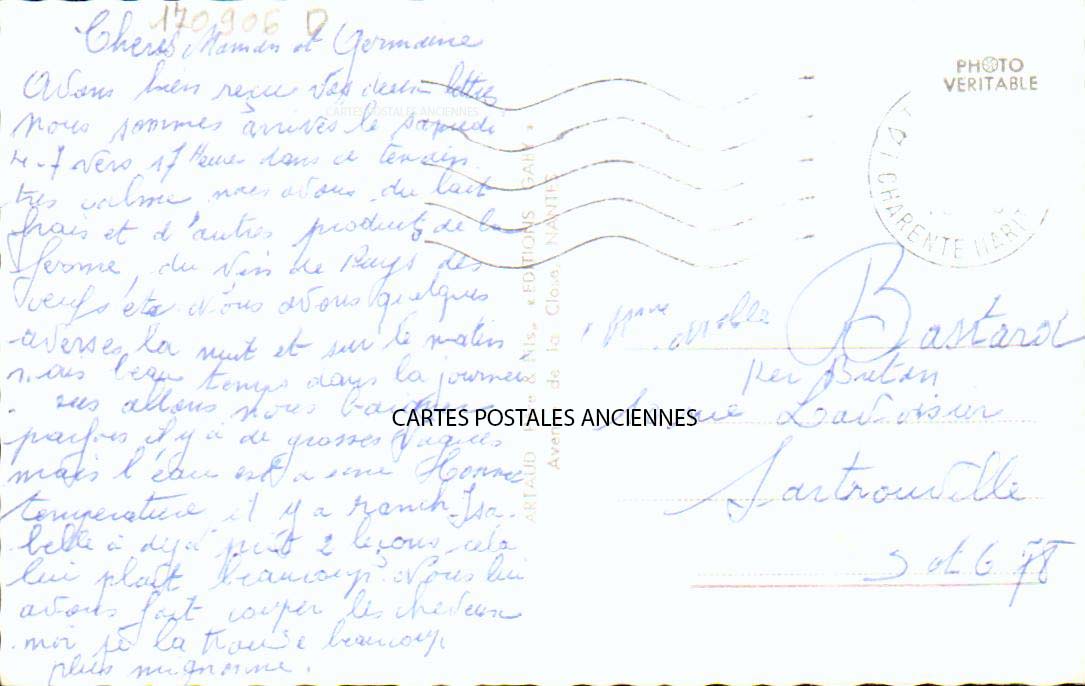 170906 D
Cheres Maman et Germaine
Avons bien reçu vos deux lettres
Nous sommes arrivés le samedi
4-7 vers 17 Heures dans ce terrain
tres calme nous avons du lait
frais et d'autres produits de la
ferme, du vin de Pays des
oeufs etc Nous avons quelques
averses la nuit et sur le matin
mais beau temps dans la journée
nous allons nous baigner
parfois il y a de grosses vagues
mais l'eau est a une bonne
temperature il y a ranch Isa-
belle à déjà prit 2 leçons cela
lui plait beaucoup. Nous lui
avons fait couper les cheveux
moi je la trouve beaucoup
plus mignonne.
CARTES POSTALES ANCIENNES
CARTES POSTALES ANCIENNES
ARTAUD & Fils. « EDITIONS GABY »
Avenue de la Close, NANTES
PHOTO
VERITABLE
CHARENTE MARI
Mme Melle Bastard
Ker Breton
Lavoisier
Sartrouville
S et O 78